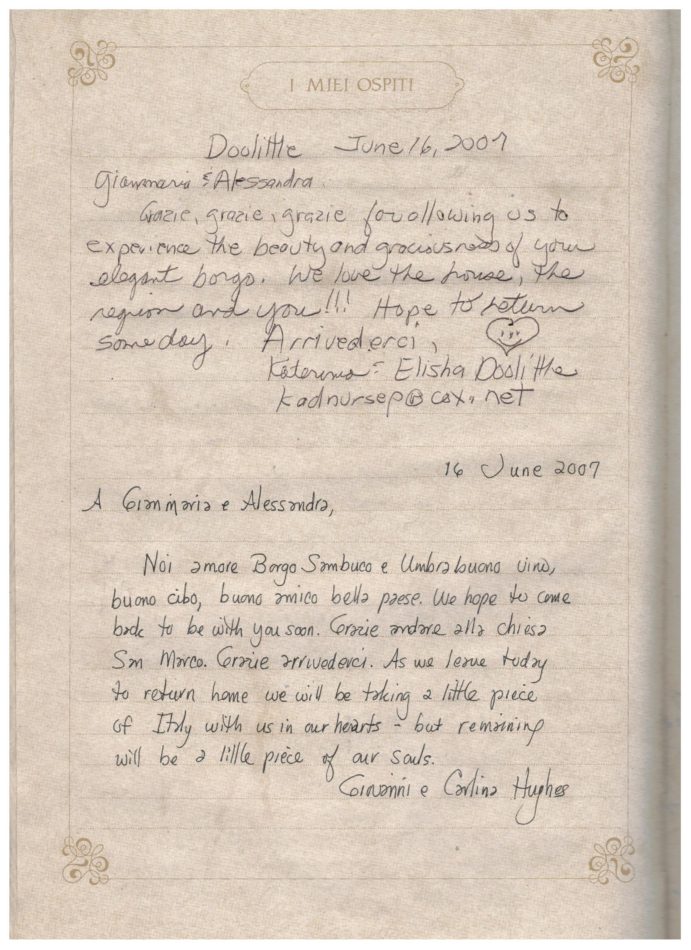 I MIEI OSPITI
Doolittle June 16, 2007
Giammaria & Alessandra.
Grazie, grazie, grazie for allowing us to
experience the beauty and graciousness of your
elegant borgo. We love the house, the
region and you!!! Hope to return
someday. Arrivederci,
& Elisha Doolittle
kadnursep@cox.net
16 June 2007
A Gianmaria e Alessandra,
Noi amore Borgo Sambuco e Umbra buono vino,
buono cibo, buono amico bella paese. We hope to come
back to be with you soon. Grazie andare alla chiesa
San Marco. Grazie arrivederci. As we leave today
to return home we will be taking a little piece
of Italy with us in our hearts - but remaining
will be a little piece of our souls.
Giovanni e Carlina Hughes